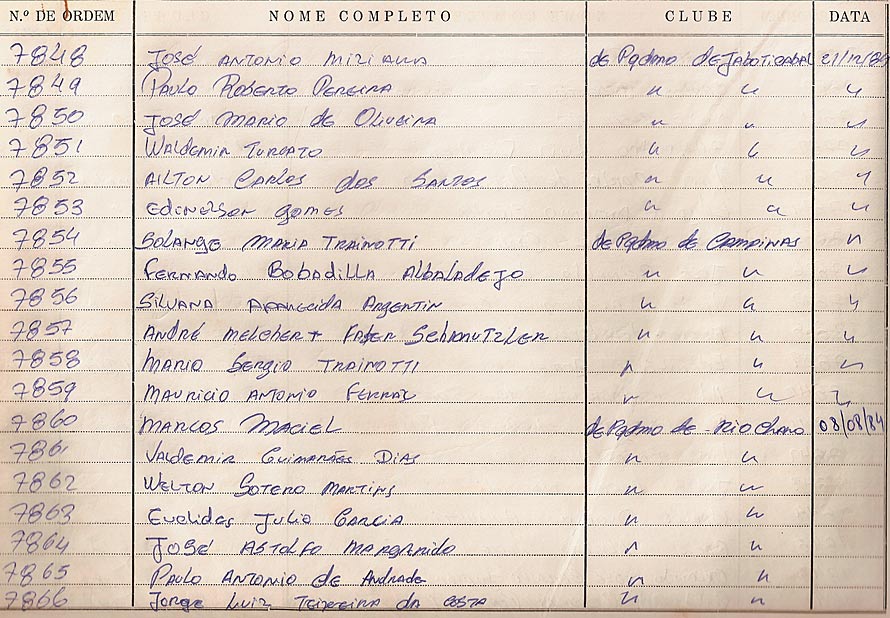 N.º DE ORDEM NOME COMPLETO CLUBE DATA
7848 José Antonio Miziara de Pqdmo de Jaboticabal 21/12/84
7849 Paulo Roberto Pereira " " "
7850 José Mario de Oliveira " " "
7851 Waldemir Turcato " " "
7852 Ailton Carlos dos Santos " " "
7853 Edinelson Gomes " " "
7854 Solange Maria Trainotti de Pqdmo de Campinas "
7855 Fernando Bobadilla Albaladejo " " "
7856 Silvana Aparecida Argentin " " "
7857 André Melchert Schmutzler " " "
7858 Mario Sergio Trainotti " " "
7859 Mauricio Antonio Ferraz " " "
7860 Marcos Maciel de Pqdmo de Rio Claro 08/08/84
7861 Valdemir Guimarães Dias " "
7862 Welton Sotero Martins " "
7863 Euclides Julio Garcia " "
7864 José Astolfo Margarido " "
7865 Paulo Antonio de Andrade " "
7866 Jorge Luiz Teixeira da Costa " "